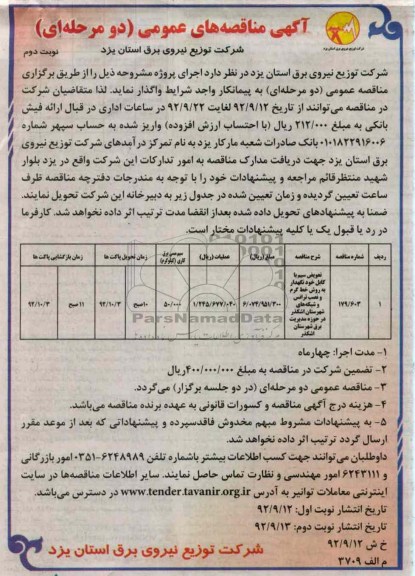 آگهی مناقصه‌های عمومی (دو مرحله‌ای)
شرکت توزیع نیروی برق استان یزد
نوبت دوم
شرکت توزیع نیروی برق استان یزد در نظر دارد اجرای پروژه مشروحه ذیل را از طریق برگزاری
مناقصه عمومی (دو مرحله‌ای) به پیمانکار واجد شرایط واگذار نماید. لذا متقاضیان شرکت
در مناقصه می‌توانند از تاریخ ۹۲/۹/۱۲ لغایت ۹۲/۹/۲۲ در ساعات اداری در قبال ارائه فیش
بانکی به مبلغ ۲۱۲/۰۰۰ ریال (با احتساب ارزش افزوده) واریز شده به حساب سپهر شماره
۰۱۰۱۸۲۲۹۱۶۰۰۶ بانک صادرات شعبه مارکار یزد به نام تمرکز درآمدهای شرکت توزیع نیروی
برق استان یزد جهت دریافت مدارک مناقصه به امور تدارکات این شرکت واقع در یزد بلوار
شهید منتظرقائم مراجعه و پیشنهادات خود را با توجه به مندرجات دفترچه مناقصه ظرف
ساعت تعیین گردیده و زمان تعیین شده در جدول زیر به دبیرخانه این شرکت تحویل نمایند.
ضمنا به پیشنهادهای تحویل داده شده بعداز انقضا مدت ترتیب اثر داده نخواهد شد. کارفرما
در رد یا قبول یک یا کلیه پیشنهادات مختار است.
ردیف شماره مناقصه شرح مناقصه مبلغ (ریال) عملیات (ریال) زمان تحویل پاکت ها زمان بازگشایی پاکت ها
۱ ۱۷۹/۶۰۳ تعویض سیم با کابل خود نگهدار به روش خط گرم و نصب ترانس و شبکه‌های شهرستان اشکذر در حوزه مدیریت برق شهرستان اشکذر ۱/۴۴۵/۶۷۷/۰۲۰ ۵۰/۰۰۰ ۱۰صبح ۹۲/۱۰/۳ ۱۱صبح ۹۲/۱۰/۳
ParsNamadData
۱- مدت اجرا: چهارماه
۲- تضمین شرکت در مناقصه به مبلغ ۴۰۰/۰۰۰/۰۰۰ریال
۳- مناقصه عمومی دو مرحله‌ای (در دو جلسه برگزار) می‌گردد.
۴- هزینه درج آگهی مناقصه و کسورات قانونی به عهده برنده مناقصه می‌باشد.
۵- به پیشنهادات مشروط مبهم مخدوش فاقدسپرده و پیشنهاداتی که بعد از موعد مقرر
ارسال گردد ترتیب اثر داده نخواهد شد.
داوطلبان می‌توانند جهت کسب اطلاعات بیشتر باشماره تلفن ۶۲۴۸۹۸۹-۰۳۵۱ امور بازرگانی
و ۶۲۴۳۱۱۱ امور مهندسی و نظارت تماس حاصل نمایند. سایر اطلاعات مناقصه‌ها در سایت
اینترنتی معاملات توانیر به آدرس www.tender.tavanir.org.ir در دسترس می‌باشد.
تاریخ انتشار نوبت اول: ۹۲/۹/۱۲
تاریخ انتشار نوبت دوم: ۹۲/۹/۱۳
خ ش ۹۲/۹/۱۲
م الف ۳۷۰۹
شرکت توزیع نیروی برق استان یزد